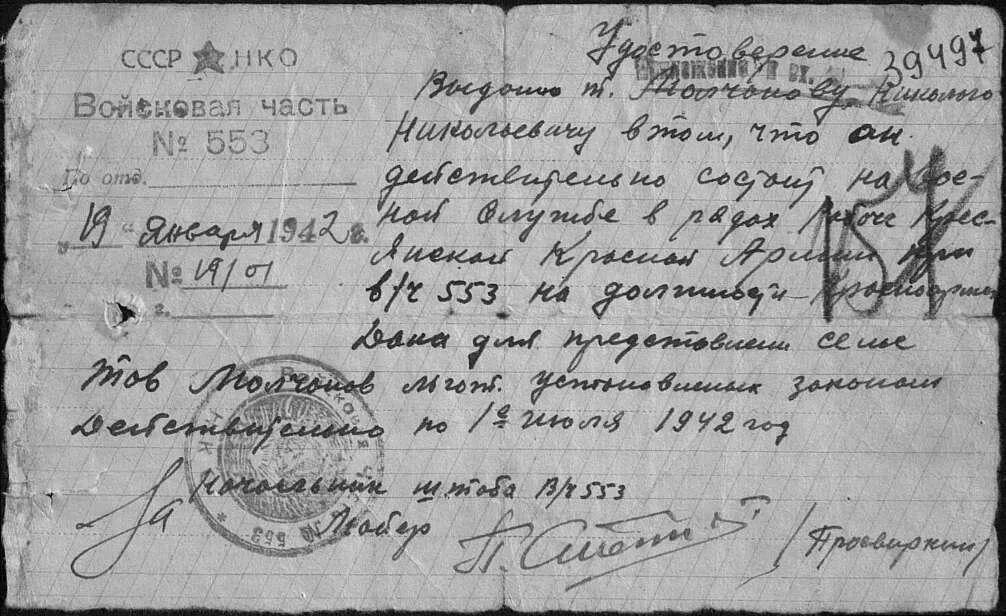 СССР НКО
Войсковая часть
№ 553
По отд.
„19“ Января 1942 г.
№ 19/01
г.
39497
Удостоверение
вх.
Выдано т. Молчанову Николаю
Николаевичу в том, что он
действительно состоит на вое-
ной службе в рядах Рабоче Крес-
янской Красной Армии при
в/ч 553 на должности красноармеец
Дана для представлени семье
тов Молчанов льгот. установленых законом
Действительно по 1е июля 1942 год
За Начальник штаба В/ч 553
/Просвиркин/
№ 553